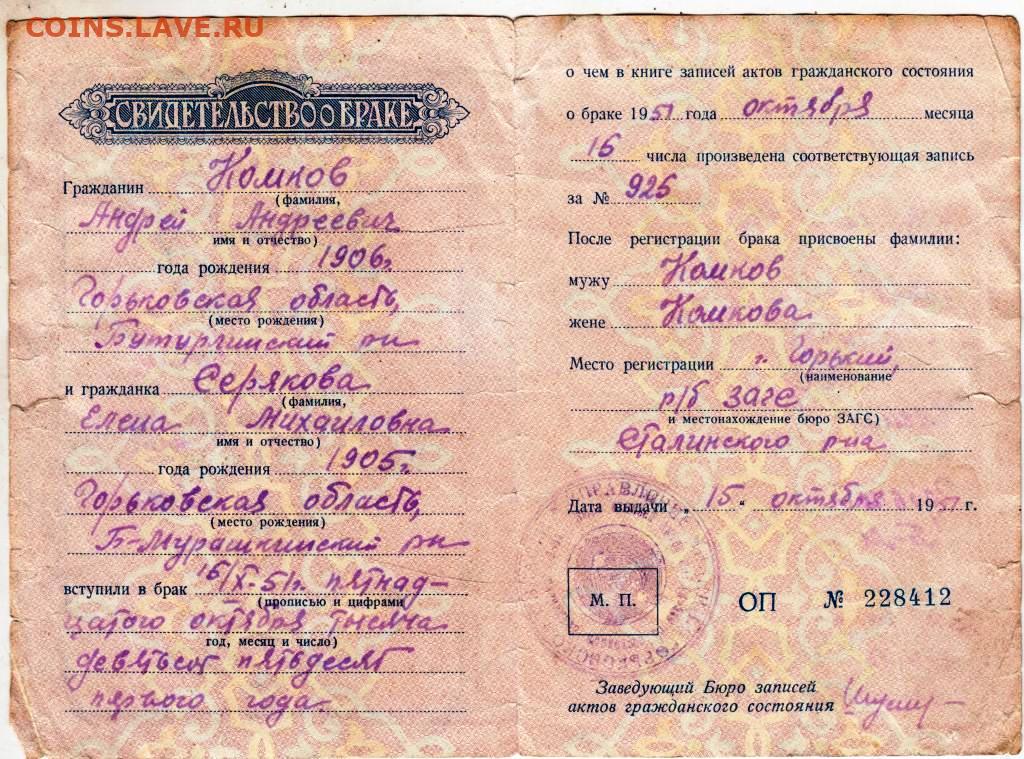 COINS.LAVE.RU
СВИДЕТЕЛЬСТВО О БРАКЕ
Гражданин Комков
(фамилия,
Андрей Андреевич
имя и отчество)
года рождения 1906г.
Горьковская область,
(место рождения)
Бутурлинский рн
и гражданка Серякова
(фамилия,
Елена Михаиловна
имя и отчество)
года рождения 1905г.
Горьковская область,
(место рождения)
Б-Мурашкинский рн
вступили в брак /X-51г. пятнад-
(прописью и цифрами
цатого октября тысяча
год, месяц и число)
девятьсот пятьдесят
первого года.
о чем в книге записей актов гражданского состояния
о браке 1951 года октября месяца
16 числа произведена соответствующая запись
за № 925
После регистрации брака присвоены фамилии:
мужу Комков
жене Комкова
Место регистрации г. Горький,
(наименование
р/б ЗАГС
и местонахождение бюро ЗАГС)
Сталинского р-на
Дата выдачи „15“ октября 1951 г.
М. П.
ОП № 228412
Заведующий Бюро записей
актов гражданского состояния